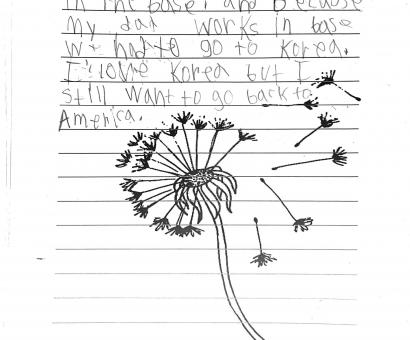 in the base, and because
my dad works in base
we had to go to Korea.
I love Korea but I
still want to go back to
America.